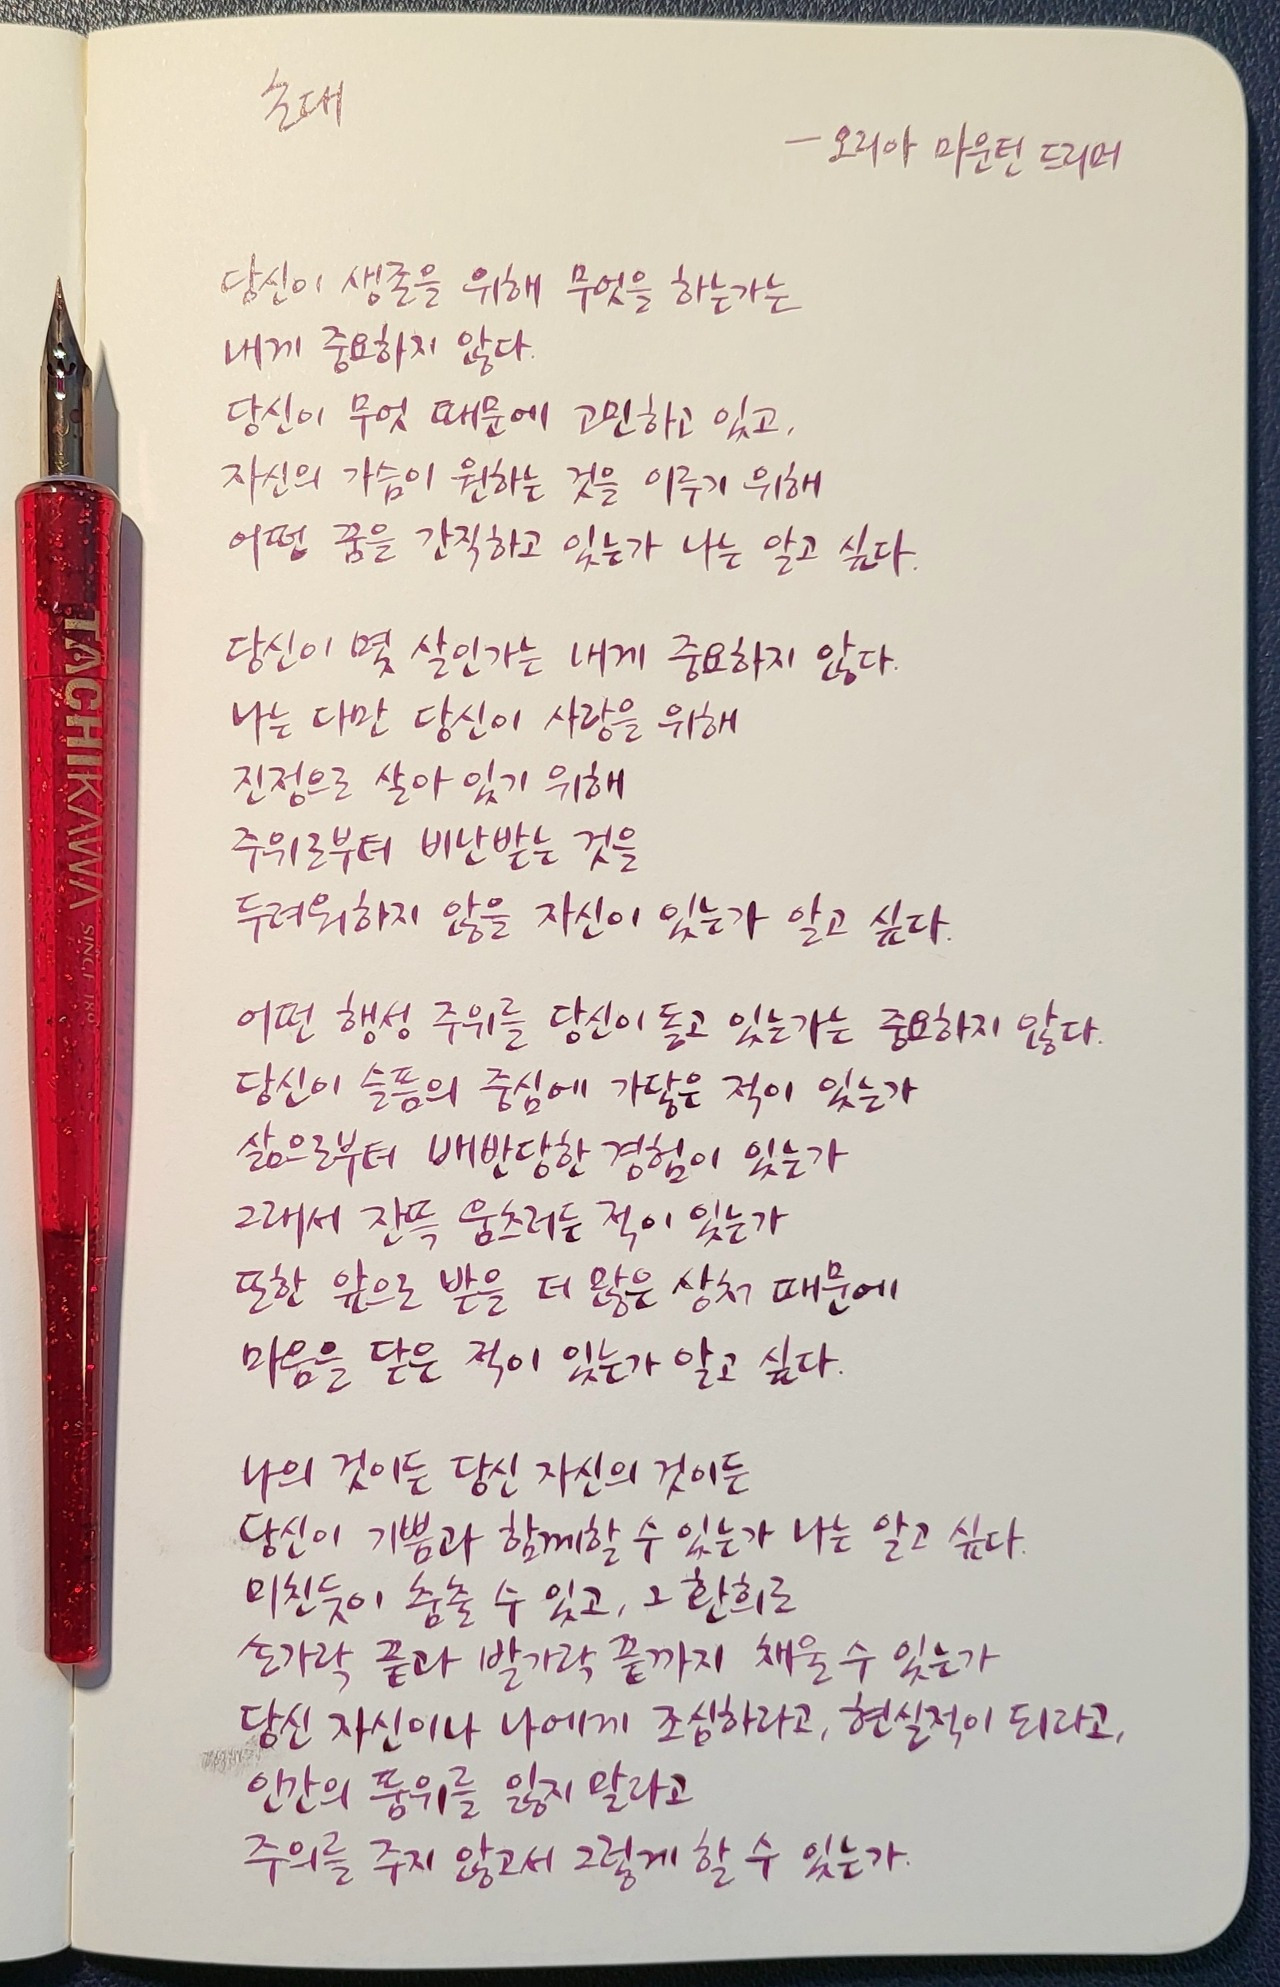 초대
— 오리아 마운틴 드리머
당신이 생존을 위해 무엇을 하는가는
내게 중요하지 않다.
당신이 무엇 때문에 고민하고 있고,
자신의 가슴이 원하는 것을 이루기 위해
어떤 꿈을 간직하고 있는가 나는 알고 싶다.
당신이 몇 살인가는 내게 중요하지 않다.
나는 다만 당신이 사랑을 위해
진정으로 살아 있기 위해
주위로부터 비난받는 것을
두려워하지 않을 자신이 있는가 알고 싶다.
어떤 행성 주위를 당신이 돌고 있는가는 중요하지 않다.
당신이 슬픔의 중심에 가닿은 적이 있는가
삶으로부터 배반당한 경험이 있는가
그래서 잔뜩 움츠러든 적이 있는가
또한 앞으로 받을 더 많은 상처 때문에
마음을 닫은 적이 있는가 알고 싶다.
나의 것이든 당신 자신의 것이든
당신이 기쁨과 함께할 수 있는가 나는 알고 싶다.
미친듯이 춤출 수 있고, 그 환희로
손가락 끝과 발가락 끝까지 채울 수 있는가
당신 자신이나 나에게 조심하라고, 현실적이 되라고,
인간의 품위를 잃지 말라고
주의를 주지 않고서 그렇게 할 수 있는가.
TACHIKAWA SINCE